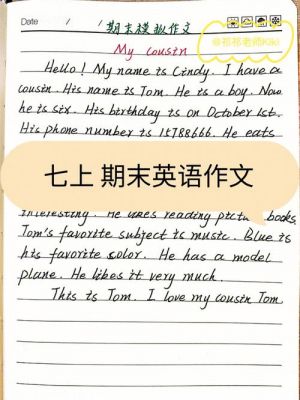 Date / /
期末模拟作文
@祁祁老师Kiki
My cousin
Hello! My name is Cindy. I have a
cousin. His name is Tom. He is a boy. Now
he is six. His birthday is on October 1st.
His phone number is 15788666. He eats
七上 期末英语作文
interesting. He likes reading picture books
Tom's favorite subject is music. Blue is
his favorite color. He has a model
plane. He likes it very much.
This is Tom. I love my cousin Tom